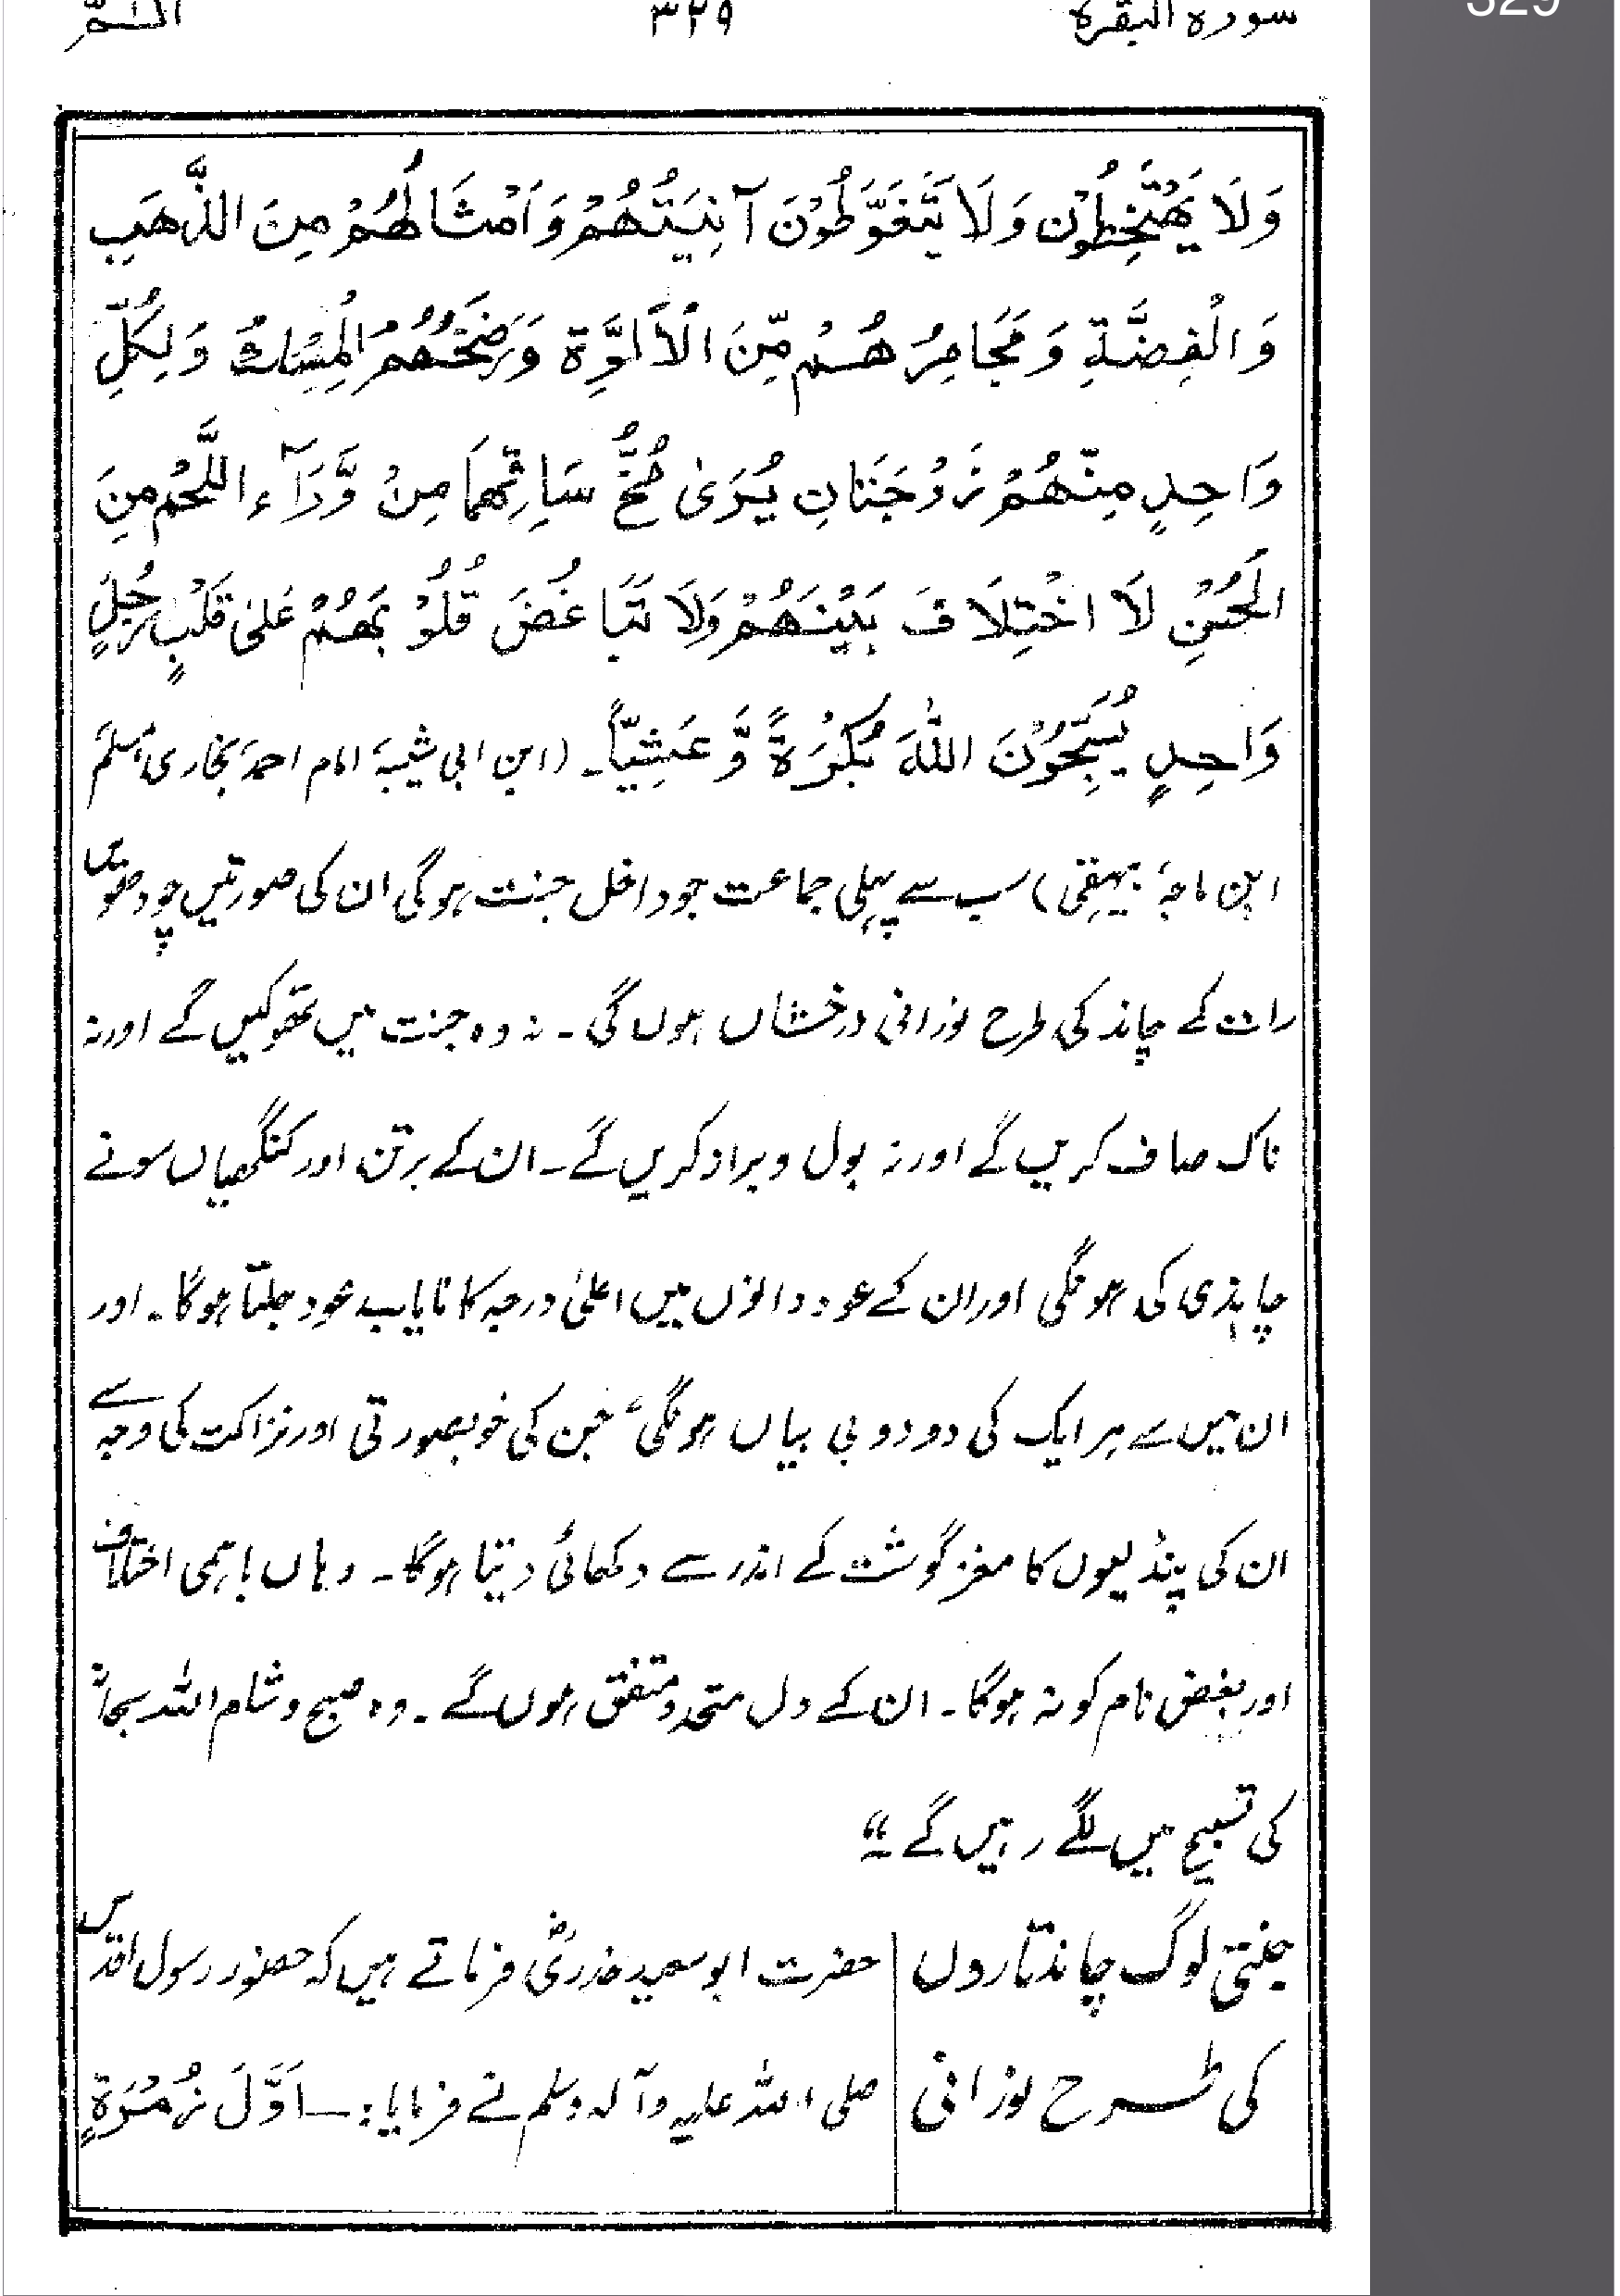 329
سورة البقرة ٣٢٩ الٓـمّٓ
وَلَا يَمْتَخِطُوْنَ وَلَا يَتَغَوَّطُوْنَ آنِيَتُهُمْ وَاَمْشَاطُهُمْ مِنَ الذَّهَبِ
وَالْفِضَّةِ وَمَجَامِرُهُمْ مِّنَ الْاَلُوَّةِ وَرَضْخُهُمُ الْمِسْكُ وَلِكُلِّ
وَاحِدٍ مِنْهُمْ زَوْجَتَانِ يُرٰى مُخُّ سَاقِهِمَا مِنْ وَّرَآءِ اللَّحْمِ مِنَ
الْحُسْنِ لَا اخْتِلَافَ بَيْنَهُمْ وَلَا تَبَاغُضَ قُلُوْبُهُمْ عَلٰى قَلْبِ رَجُلٍ
وَاحِدٍ يُسَبِّحُوْنَ اللهَ بُكْرَةً وَّعَشِيًّا۔ (ابن ابی شیبہ، امام احمد، بخاری، مسلم
ابن ماجہ، بیہقی) سب سے پہلی جماعت جو داخل جنت ہوگی ان کی صورتیں چودھویں
رات کے چاند کی طرح نورانی درخشاں ہوں گی۔ نہ وہ جنت میں تھوکیں گے اور نہ
ناک صاف کریں گے اور نہ بول و براز کریں گے۔ ان کے برتن اور کنگھیاں سونے
چاندی کی ہونگی اور ان کے عود دانوں میں اعلیٰ درجہ کا نایاب عود جلتا ہوگا۔ اور
ان میں سے ہر ایک کی دو دو بی بیاں ہونگی، جن کی خوبصورتی اور نزاکت کی وجہ سے
ان کی پنڈلیوں کا مغز گوشت کے اندر سے دکھائی دیتا ہوگا۔ وہاں باہمی اختلاف
اور بغض نام کو نہ ہوگا۔ ان کے دل متحد و متفق ہوں گے۔ وہ صبح و شام اللہ سبحانہ
کی تسبیح میں لگے رہیں گے۔“
جنتی لوگ چاند تاروں
کی طرح نورانی
حضرت ابو سعید خدریؓ فرماتے ہیں کہ حضور رسول اقدس
صلی اللہ علیہ وآلہ وسلم نے فرمایا:ــ اَوَّلَ زُمْرَةٍ